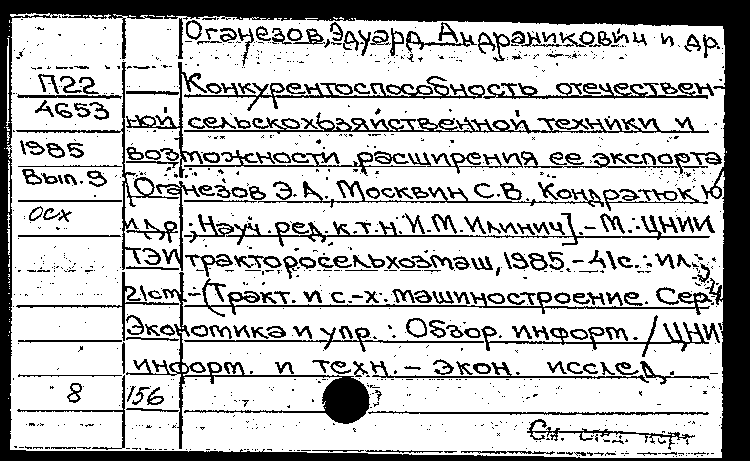 Оганезов, Эдуард Андраникович и др.
П22 Конкурентоспособность отечествен-
4653 ной сельскохозяйственной техники и
1985 возможности расширения ее экспорта
Вып. 9 [Оганезов Э.А., Москвин С.В., Кондратюк Ю
осх и др.; Науч. ред. к.т.н. И.М. Илинич]. - М.: ЦНИИ
ТЭИ тракторосельхозмаш, 1985. - 41с.: ил.;
21cm - (Тракт. и с.-х. машиностроение. Сер.
Экономика и упр.: Обзор. информ. / ЦНИИ
информ. и техн. - экон. исслед.
8 156
См. след. карт